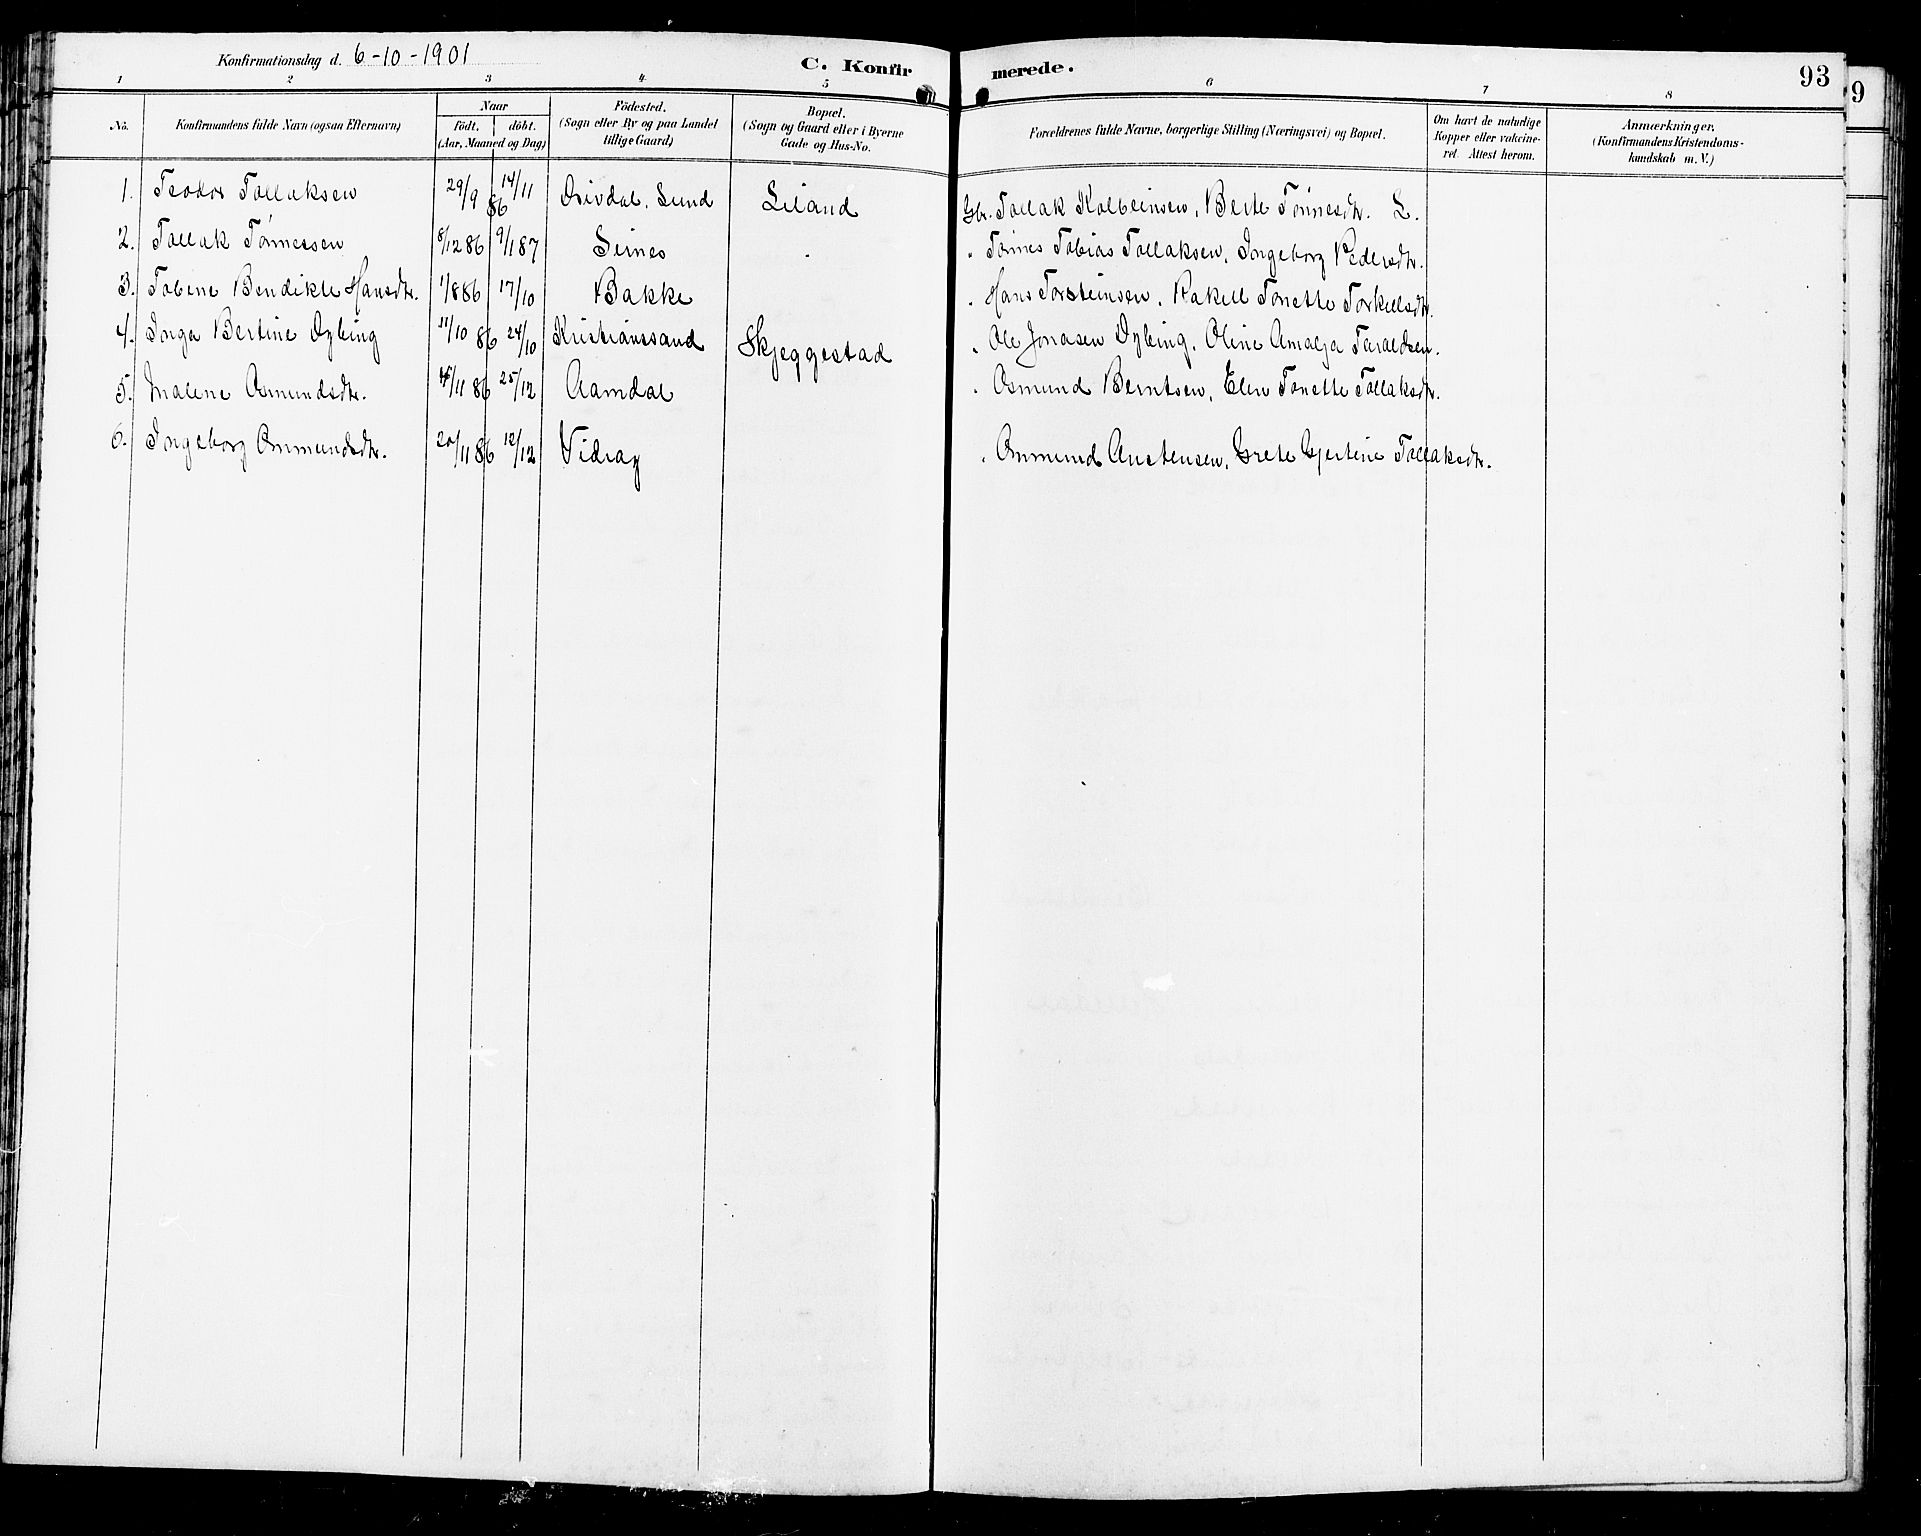 Konfirmationsdag d. 6-10-1901 C. Konfirmerede. 93
1 2 3 4 5 6 7 8 9
No. Konfirmandens fulde Navn (ogsaa Efternavn) Naar Födt. döbt. (Aar, Maaned og Dag) Födested. (Sogn eller By og paa Landet tillige Gaard) Bopæl. (Sogn og Gaard eller i Byerne Gade og Hus-No. Forældrenes fulde Navne, borgerlige Stilling (Næringsvei) og Bopæl. Om havt de naturlige Kopper eller vakcineret. Attest herom. Anmærkninger. (Konfirmandens Kristendomskundskab m. V.)
1. Teodor Tollaksen 29/9 86 14/11 Drivdal, Lund Liland Gbr. Tollak Kolbeinsen, Berte Tønnesdtr. L.
2. Tollak Tønnessen 8/12 86 9/1 87 Seines . " Tønnes Tobias Tollaksen, Ingeborg Pedersdtr.
3. Tobine Bendikte Hansdtr. 1/8 86 17/10 Bakke " Hans Torsteinsen, Rakell Tonette Torkellsdtr.
4. Inga Bertine Dybing 11/10 86 24/10 Kristianssand Skjeggestad " Ole Jonasen Dybing, Oline Amalja Taraldsen.
5. Malene Osmundsdtr. /11 86 25/12 Aamdal " Osmund Berntsen, Elen Tonette Tollaksdtr.
6. Ingeborg Ommundsdtr. 20/11 86 12/12 Vidray " Ommund Anstensen, Grete Gjertine Tollaksdtr.